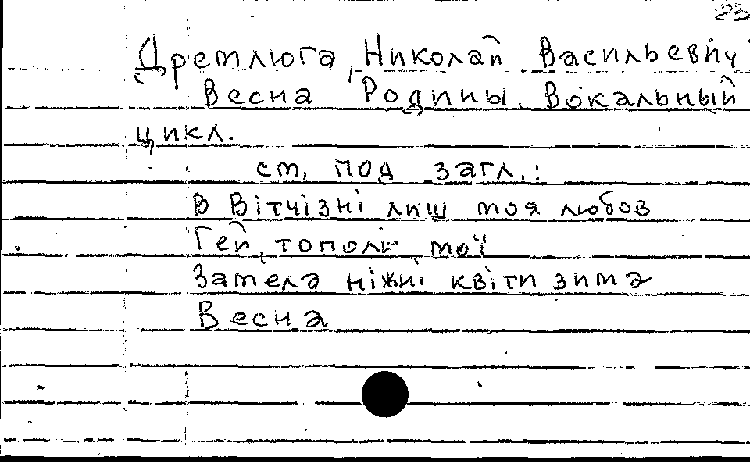 23
Дремлюга, Николай Васильевич
Весна Родины. Вокальный
цикл.
см. под загл.:
В Вітчізні лиш моя любов
Гей, тополи мої
Замела ніжні квіти зима
Весна